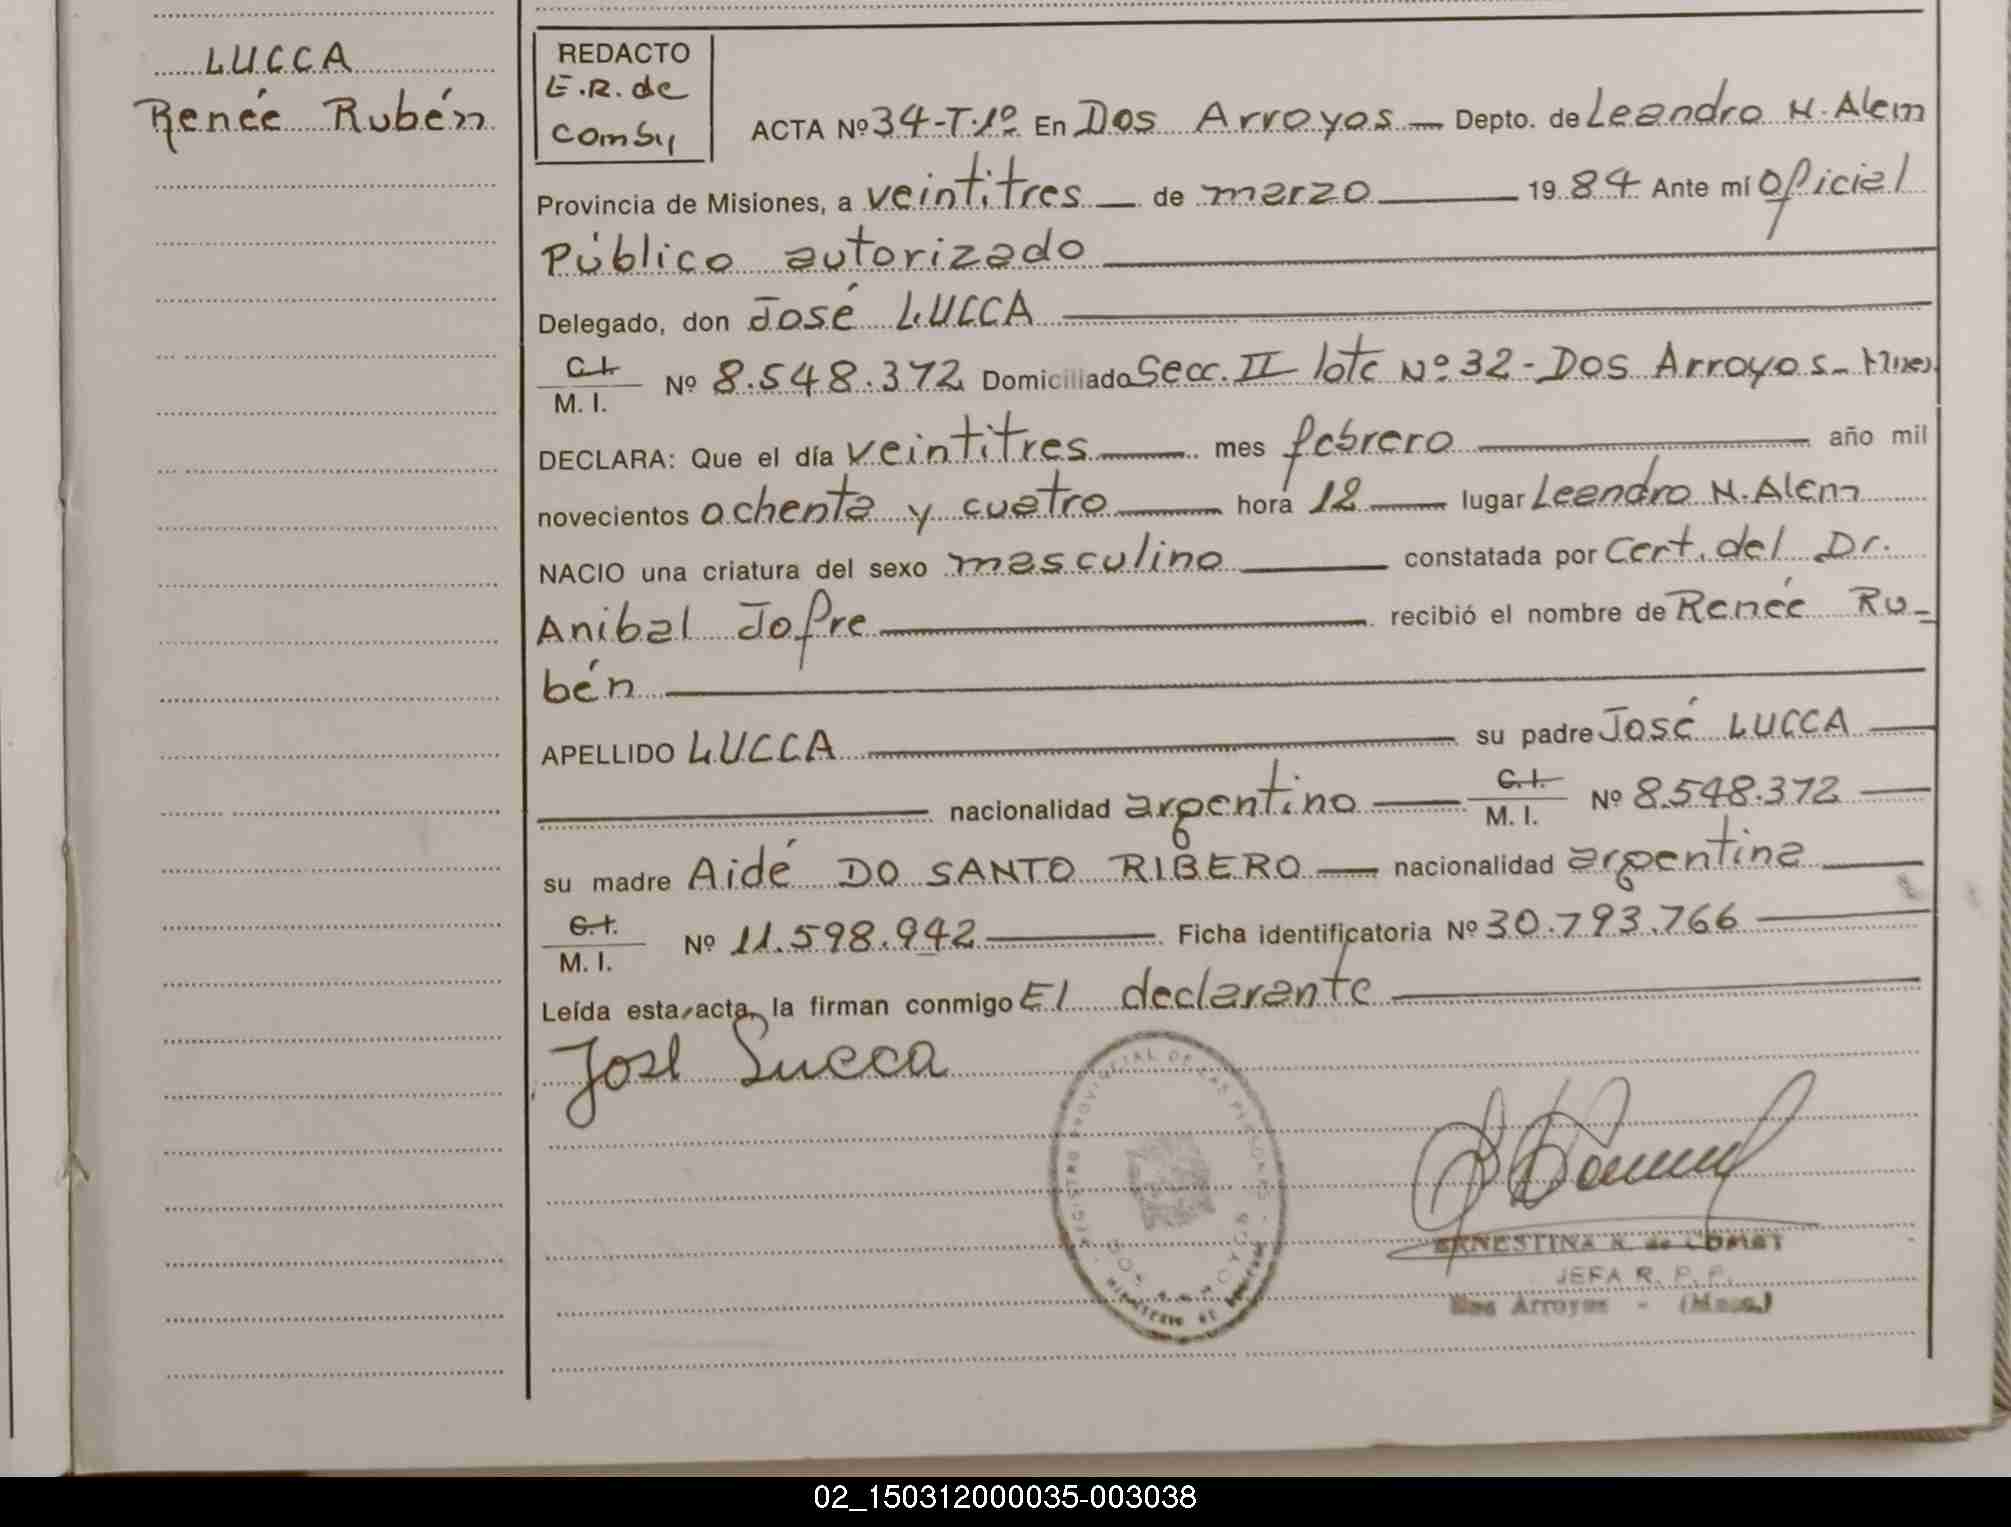 LUCCA
Reneé Rubén
REDACTO
E.R. de
Comby
ACTA Nº 34-T.1º En Dos Arroyos — Depto. de Leandro N. Alem
Provincia de Misiones, a veintitres — de marzo — 19 84 Ante mí Oficial
Público autorizado
Delegado, don José LUCCA
C.I. M. I. Nº 8.548.372 Domiciliado Secc. II lote Nº 32 - Dos Arroyos - Mnes.
DECLARA: Que el día veintitres — mes febrero — año mil
novecientos ochenta y cuatro — hora 12 — lugar Leandro N. Alem
NACIO una criatura del sexo masculino — constatada por Cert. del Dr.
Anibal Jofre — recibió el nombre de Reneé Ru-
bén
APELLIDO LUCCA — su padre José LUCCA —
— nacionalidad argentino — C.I. M. I. Nº 8.548.372 —
su madre Aidé DO SANTO RIBERO — nacionalidad argentina —
C.I. M. I. Nº 11.598.942 — Ficha identificatoria Nº 30.793.766 —
Leída esta acta, la firman conmigo El declarante —
José Lucca
REGISTRO PROVINCIAL DE LAS PERSONAS
DOS ARROYOS
MINISTERIO DE GOBIERNO
ERNESTINA R. de COMBY
JEFA R. P. P.
Dos Arroyos - (Mnes.)
02_150312000035-003038